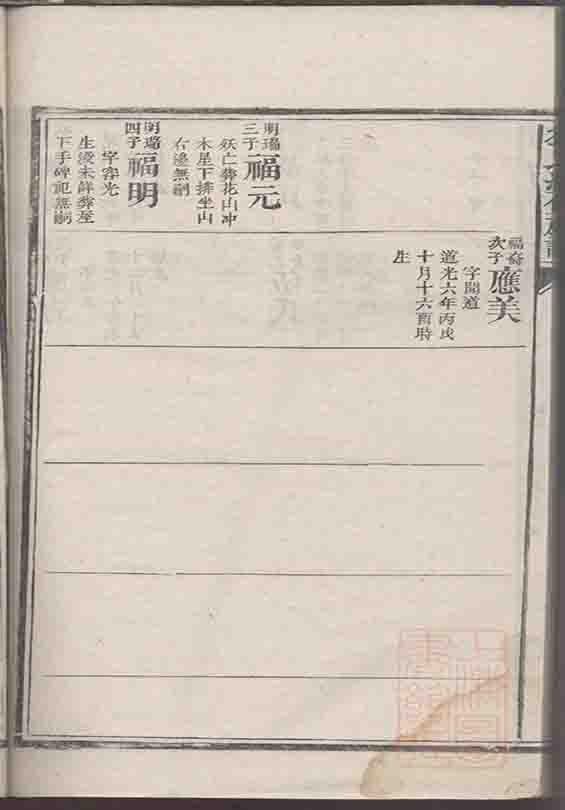 明瑞
三子
福元
妖亡葬花山冲
木星下排坐山
右邊無嗣
明瑞
四子
福明
字容光
生歿未詳葬屋
下手碑記無嗣
福奇
次子
應美
字開道
道光六年丙戌
十月十六酉時
生